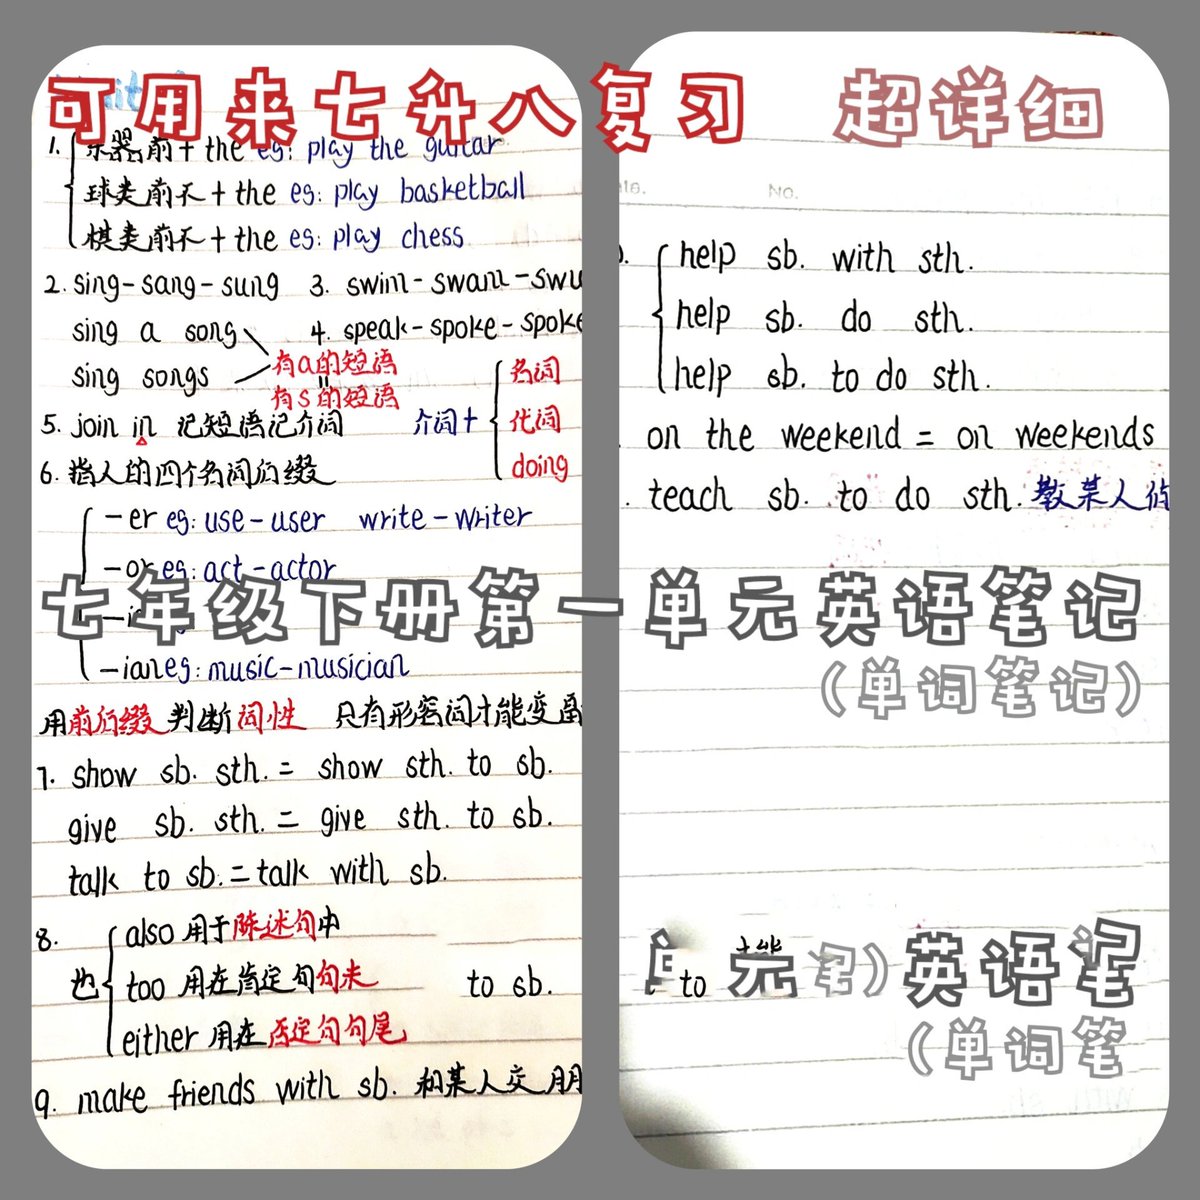 可用来七升八复习 超详细
1. 乐器前+the eg: play the guitar
球类前不+the eg: play basketball
棋类前不+the eg: play chess
2. sing-sang-sung 3. swim-swam-swu
sing a song 4. speak-spoke-spoke
有a的短语
sing songs
有s的短语
名词
5. join in 记短语记介词 介词+ 代词
doing
6. 指人的四个名词后缀
-er eg: use-user write-writer
-or eg: act-actor
七年级下册第一单元英语笔记
(单词笔记)
-ian eg: music-musician
用前后缀判断词性 只有形容词才能变
7. show sb. sth. = show sth. to sb.
give sb. sth. = give sth. to sb.
talk to sb. = talk with sb.
8. 也
also 用于陈述句中
too 用在肯定句句末 to sb.
either 用在否定句句尾
9. make friends with sb. 和某人交朋
No.
help sb. with sth.
help sb. do sth.
help sb. to do sth.
on the weekend = on weekends
teach sb. to do sth. 教某人
to 元 记) 英语笔
(单词笔